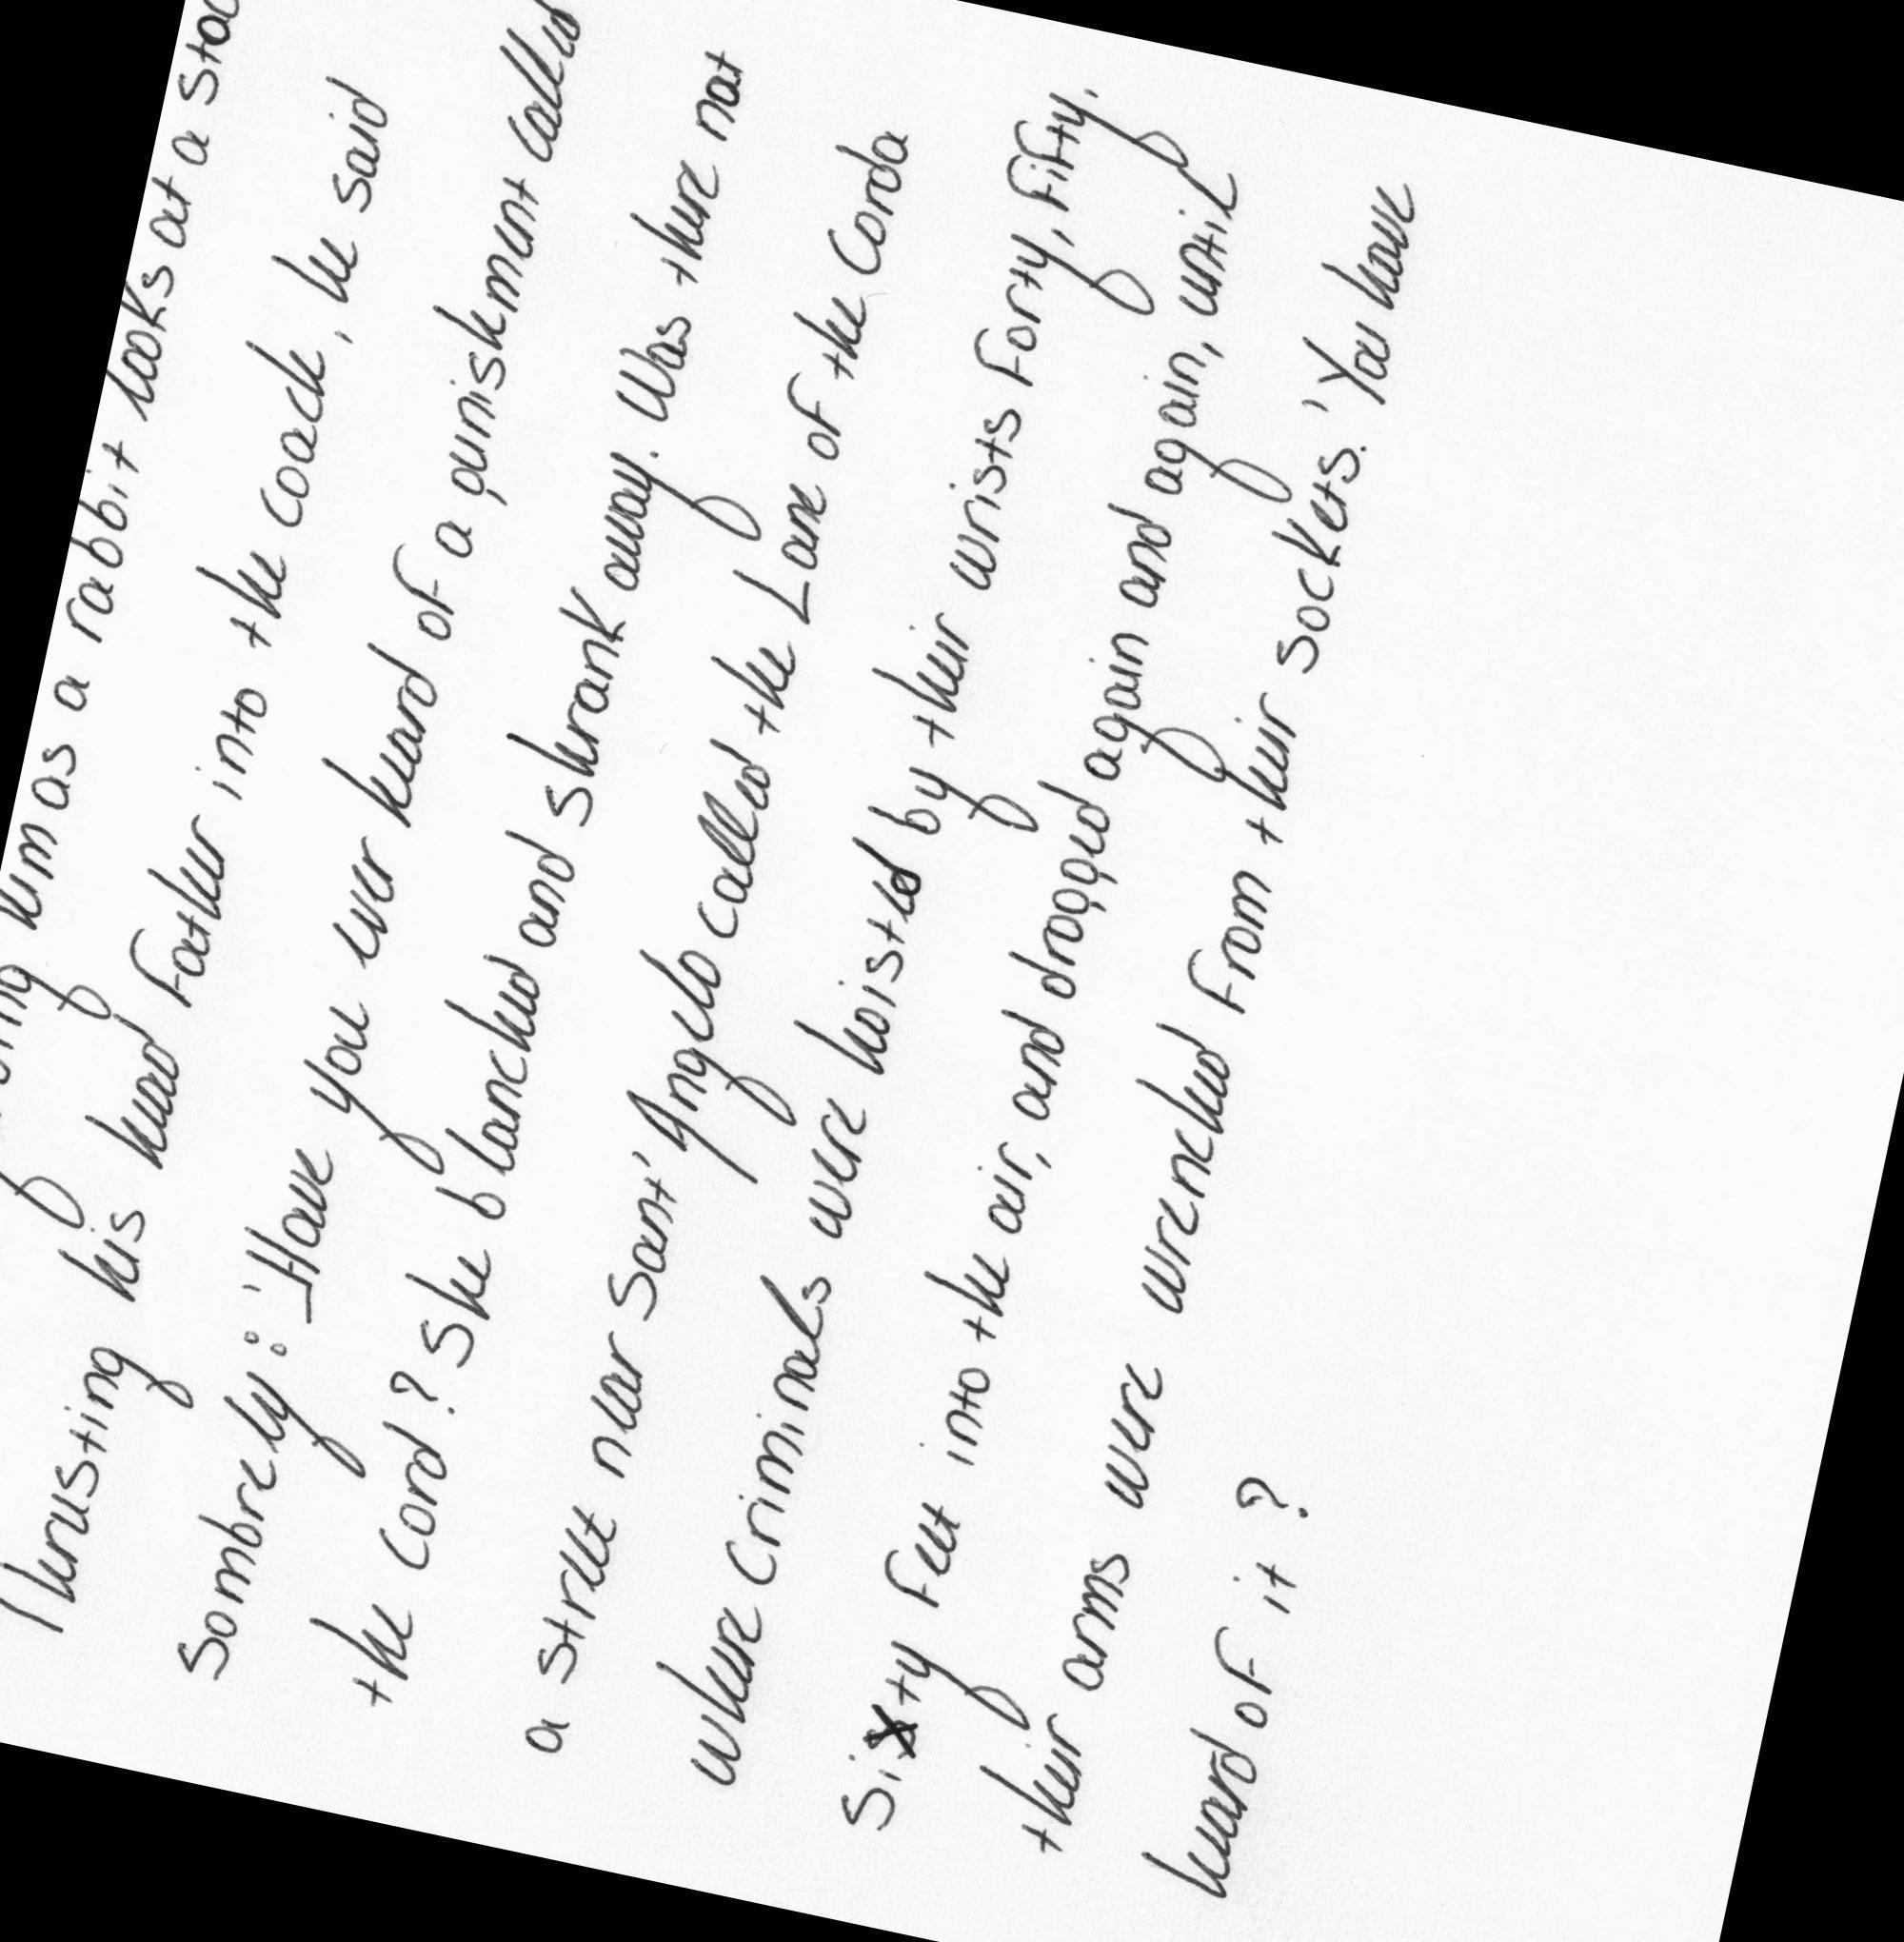 him as a rabbit looks at a
Thrusting his head Father into the coach, he said
sombrely: 'Have you ever heard of a punishment called
the Cord? She blanched and shrank away. Was there not
a street near Sant' Angelo called the Lane of the Corda
where Criminals were hoisted by their wrists Forty, Fifty,
Sixty Feet into the air, and dropped again and again, until
their arms were wrenched From their sockets.' 'You have
heard of it?